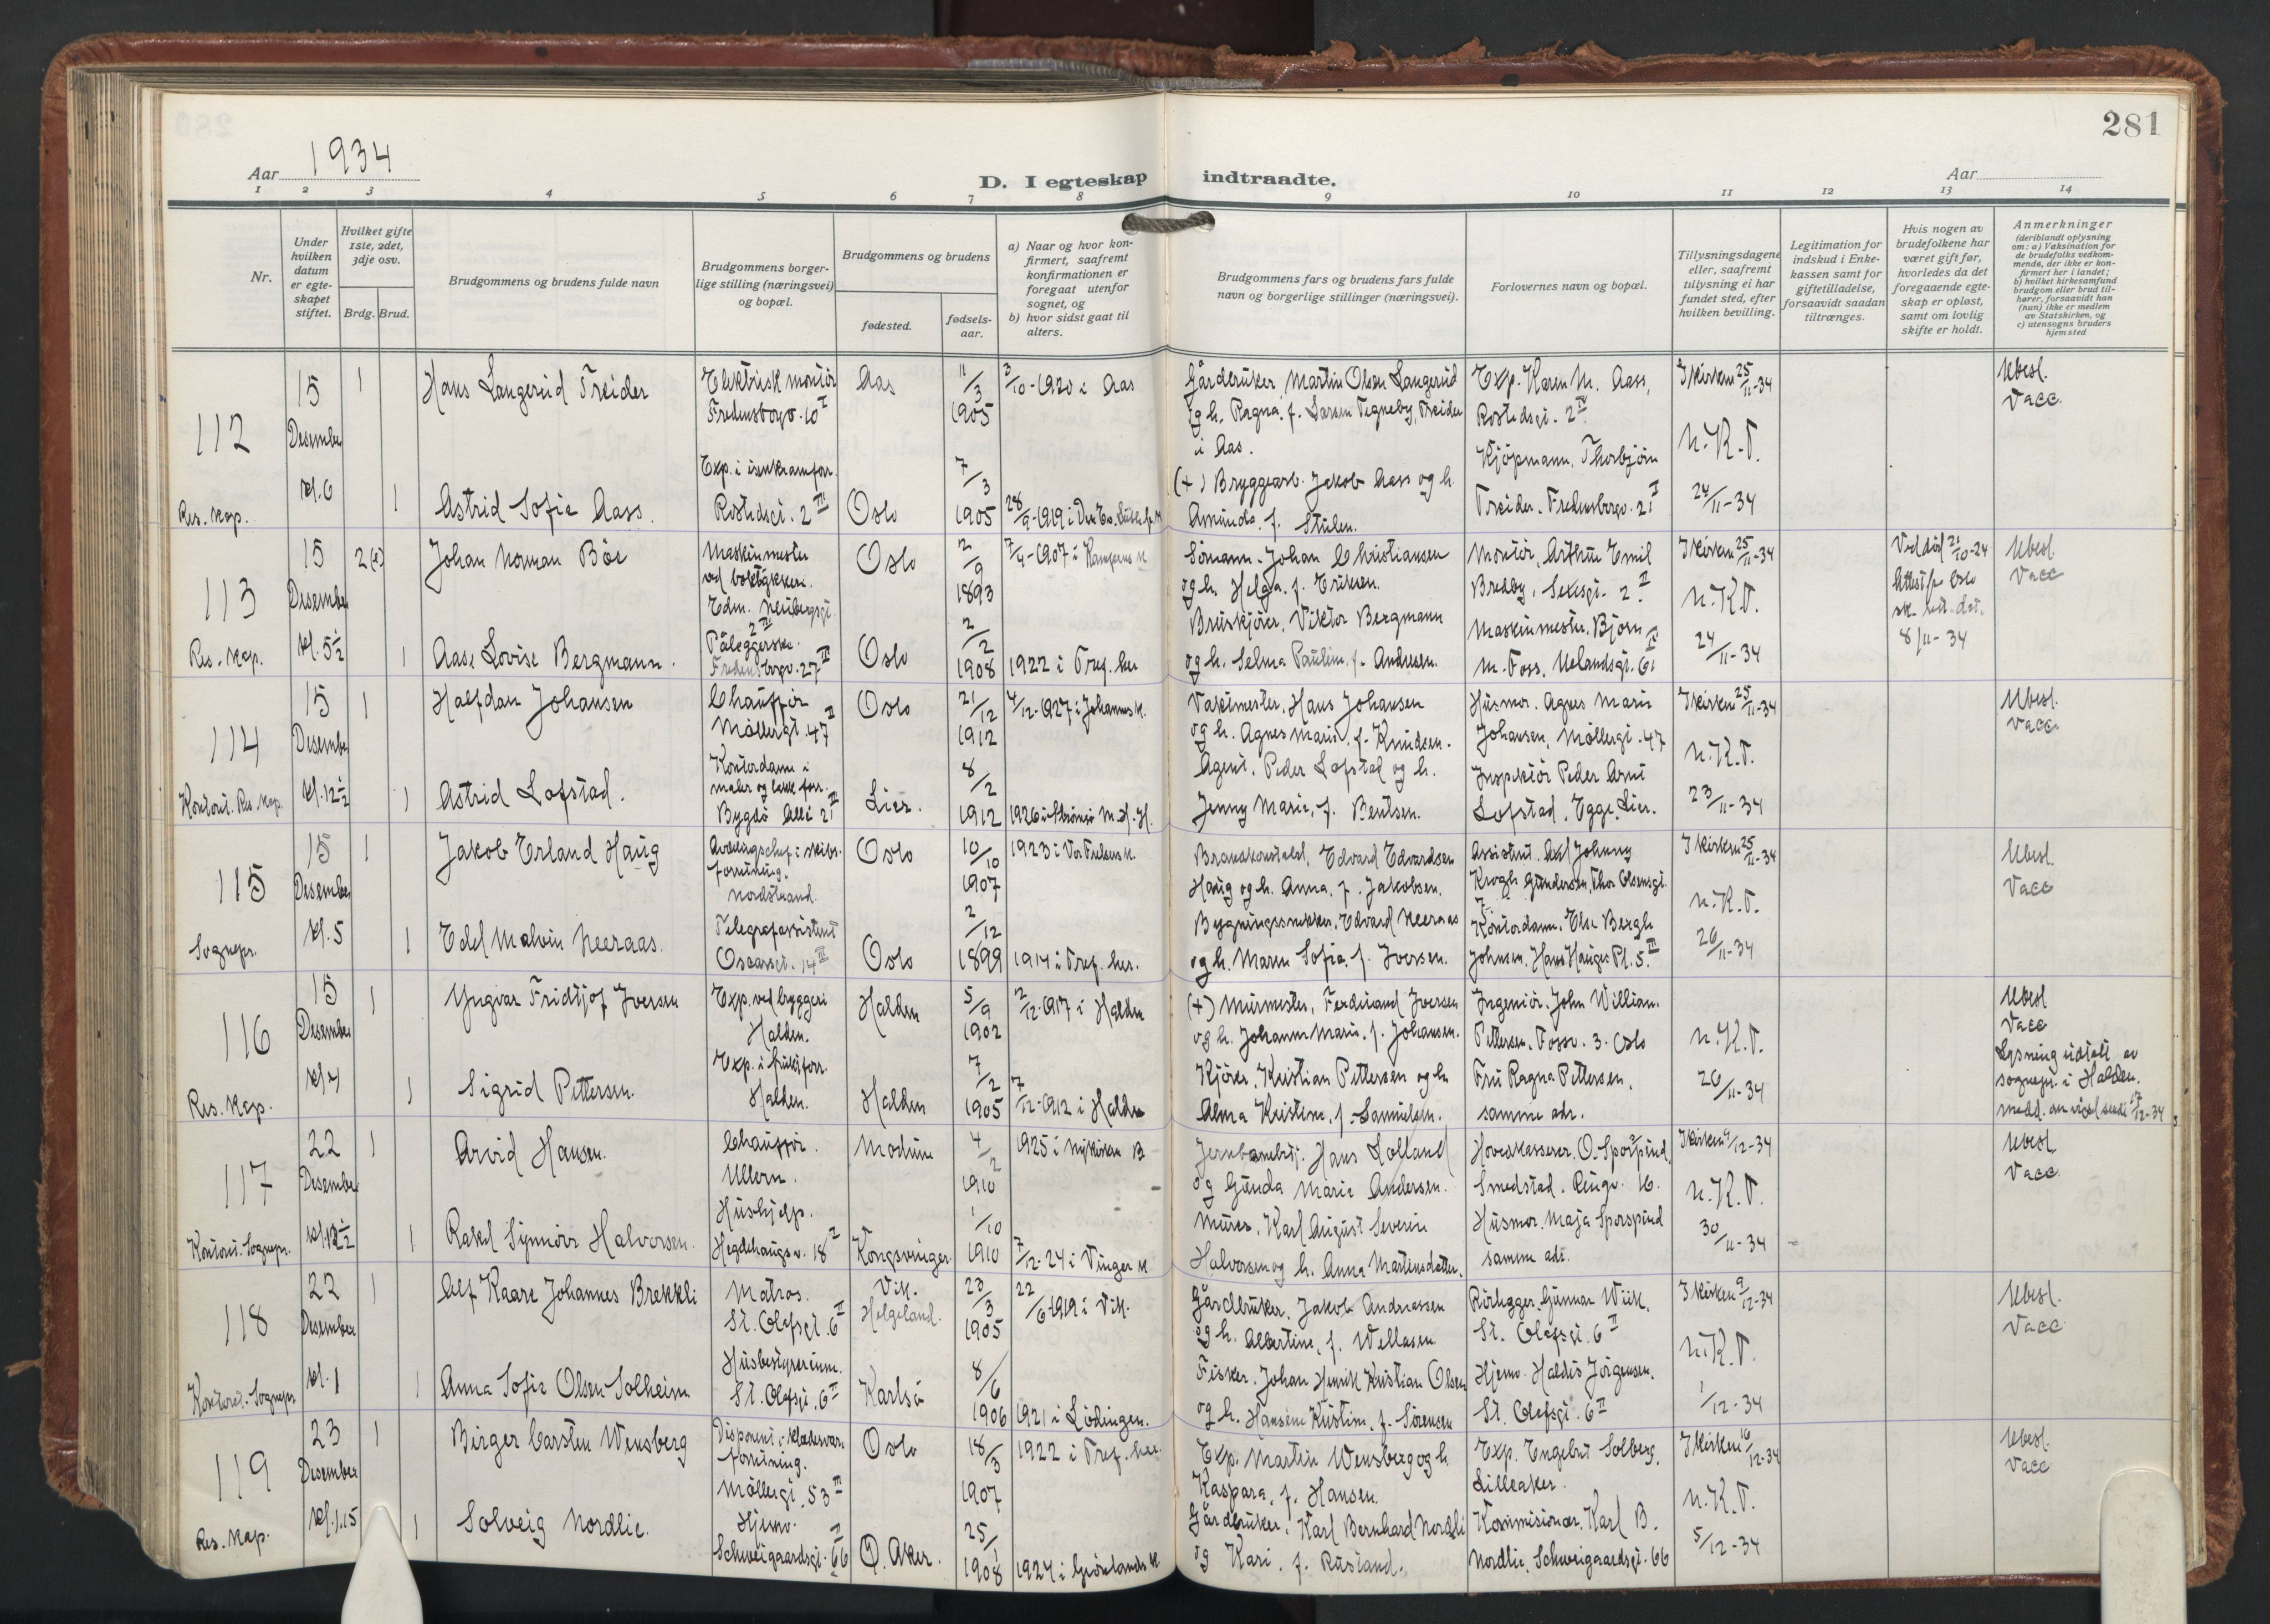 281
Aar 1934
D. I egteskap indtraadte.
Aar
1 2 3 4 5 6 7 8 9 10 11 12 13 14
Nr.
Under hvilken datum er egteskapet stiftet.
Hvilket gifte 1ste, 2det, 3dje osv.
Brdg. Brud.
Brudgommens og brudens fulde navn
Brudgommens borgerlige stilling (næringsvei) og bopæl.
Brudgommens og brudens
fødested.
fødselsaar.
a) Naar og hvor konfirmert, saafremt konfirmationen er foregaat utenfor sognet, og
b) hvor sidst gaat til alters.
Brudgommens fars og brudens fars fulde navn og borgerlige stillinger (næringsvei).
Forlovernes navn og bopæl.
Tillysningsdagene eller, saafremt tillysning ei har fundet sted, efter hvilken bevilling.
Legitimation for indskud i Enkekassen samt for giftetilladelse, forsaavidt saadan tiltrænges.
Hvis nogen av brudefolkene har været gift før, hvorledes da det foregaaende egteskap er opløst, samt om lovlig skifte er holdt.
Anmerkninger
(deriblandt oplysning om: a) Vaksination for de brudefolks vedkommende, der ikke er konfirmert her i landet; b) hvilket kirkesamfund brudgom eller brud tilhører, forsaavidt han (hun) ikke er medlem av Statskirken, og c) utensogns bruders hjemsted
112
Res. Kap.
15 Desember Kl. 6
1
Hans Langerud Treider
Elektrisk montör
Fredensborgv. 10 I
Aas
11/3 1905
3/10-1920 i Aas
Gårdbruker, Martin Olsen Langerud
og h. Ragna, f. Larsen Tegneby, Treider
i Aas.
Exp. Karen M. Aass,
Rostedsgt. 2 III
I kirken 25/11-34
N.K.T.
24/11-34
Ubesl.
Vacc.
1
Astrid Sofie Aass.
Exp. i isenkramforr.
Rostedsgt. 2 III
Oslo
7/3 1905
28/9-1919 i
(+) Bryggearb. Jakob Aass og h.
Amunda, f. Stulen.
Kjöpmann, Thorbjörn
Treider. Fredensborgv. 21 I
113
Res. Kap.
15 Desember Kl. 5 1/2
2(e)
Johan Norman Böe
Maskinmester
ved boktrykkeri.
Edm. Neubergsgt.
2 III
Oslo
2/9 1893
7/4-1907 i Kampens K
Sömann. Johan Christiansen
og h. Helga, f. Eriksen.
Montör, Arthur Emil
Bredby, Sexesgt. 2 II
I kirken 25/11-34
N.K.T.
24/11-34
Ved död 21/10-24
Attest fra Oslo
sk. rett. dat.
8/11-34
Ubesl.
Vacc
1
Aase Lovise Bergmann.
Påleggerske.
Fredensborgv. 27 III
Oslo
2/2 1908
1922 i Tref. her
Bruskjörer, Viktor Bergmann
og h. Selma Pauline, f. Andresen.
Maskinmester, Bjorn
M. Foss, Uelandsgt. 61
114
Kontoret. Res. Kap.
15 Desember Kl. 12 1/2
1
Halfdan Johansen
Chaufför
Möllergt. 47 I
Oslo
21/12 1912
4/12-1927 i Johannes K.
Vaktmester, Hans Johansen
og h. Agnes Marie, f. Knudsen.
Husmor. Agnes Marie
Johansen, Möllergt. 47
I kirken 25/11-34
N.K.T.
23/11-34
Ubesl.
Vacc.
1
Astrid Lofstad.
Kontordame i
maler og lakk forr.
Bygdö Allé 21 II
Lier.
8/2 1912
1926 i Strömsö M.H.H.
Agent. Peder Lofstad og h.
Jenny Marie, f. Bentsen.
Inspektör Peder Arnt
Lofstad, Egge, Lier.
115
Sognepr.
15 Desember Kl. 5
1
Jakob Erland Haug
Avdelingschef i skibs.
forretning.
Nordstrand.
Oslo
10/10 1907
1923 i Vor Frelsers K.
Brandkonstabel, Edvard Edvardsen
Haug og h. Anna, f. Jakobsen.
Assistent. Axel Johnny
Krogh Gundersen, Thor Olsensgt.
7.
I kirken 25/11-34
N.K.T.
26/11-34
Ubesl.
Vacc
1
Edel Malvin Neeraas.
Telegrafassistent
Oscarsgt. 14 III
Oslo
2/12 1899
1914 i Tref. her.
Bygningssnekker, Edvard Neeraas
og h. Maren Sofie, f. Iversen.
Kontordame, Else Bergh
Johnsen, Hans Hauges Pl. 5 III
116
Res. Kap.
15 Desember Kl 4
1
Yngvar Fridtjof Iversen
Exp. ved bryggeri
Halden.
Halden
5/9 1902
2/12-1917 i Halden
(+) Murmester, Ferdinand Iversen
og h. Johanne Marie, f. Johansen.
Ingeniör, John William.
Pettersen, Fossv. 3. Oslo
N.K.T.
26/11-34
Ubesl
Vacc
Lysning utstedt av
sognepr. i Halden.
Medd. om vigsel sendt 17/12-34
1
Sigrid Pettersen.
Exp. i fruktforr.
Halden.
Halden
7/2 1905
7/12-1912 i Halden
Kjörer, Kristian Pettersen og h.
Alma Kristine, f. Samuelsen.
Fru Ragna Pettersen.
samme adr.
117
Kontoret. Sognepr.
22 Desember Kl. 12 1/2
1
Arvid Hansen.
Chaufför.
Ullern.
Modum
4/2 1910
1925 i Nykirken B
Jernbanebetj. Hans Lolland
og Gunda Marie Andersen.
Hovedkasserer, O. Sporpind,
Smedstad. Ringv. 16.
I kirken 9/12-34
N.K.T.
30/11-34
Ubesl.
Vacc.
1
Rakel Synnöve Halvorsen.
Hushjelp.
Hegdehaugsv. 18 2
Kongsvinger
1/10 1910
7/12-24 i Vinger K
Murer, Karl August Severin
Halvorsen og h. Anna Martinsdatter.
Husmor. Maja Sporspind
samme adr.
118
Kontoret. Sognepr
22 Desember Kl. 1
1
Alf Kaare Johannes Brekkli
Matros.
St. Olafsgt. 6 II
Vik.
Helgeland.
23/3 1905
22/6 1919 i Vik.
Gårdbruker, Jakob Andreassen
og h. Albertine, f. Wellesen
Rörlegger, Gunnar Wiik,
St. Olafsgt. 6 II
I kirken 9/12-34
N.K.T.
1/12-34
Ubesl.
Vacc
1
Anna Sofie Olsen Solheim
Husbestyrerinne.
St. Olafsgt. 6 II
Karlsö
8/6 1906
1921 i Lödingen.
Fisker. Johan Henrik Kristian Olsen
og h. Hansine Kristine, f. Sörensen
Hjemv. Haldis Jörgensen.
St. Olafsgt. 6 II
119
Res. Kap.
23 Desember Kl. 1.15
1
Birger Carsten Wensberg
Disponent i klædesvare
forretning.
Möllergt. 53 III
Oslo
18/3 1907
1922 i Tref. her.
Exp. Martin Wensberg og h.
Kaspara, f. Hansen.
Exp. Engebret Solberg,
Lilleaker.
I kirken 16/12-34
N.K.T.
5/12-34
Ubesl.
Vacc
1
Solveig Nordlie.
Hjemv.
Schweigaardsgt. 66 II
Ö. Aker.
25/1 1908
1924 i Grönlands K
Gårdbruker, Karl Bernhard Nordli
og Kari, f. Rustand.
Kommisionær, Karl B.
Nordlie, Schweigaardsgt. 66